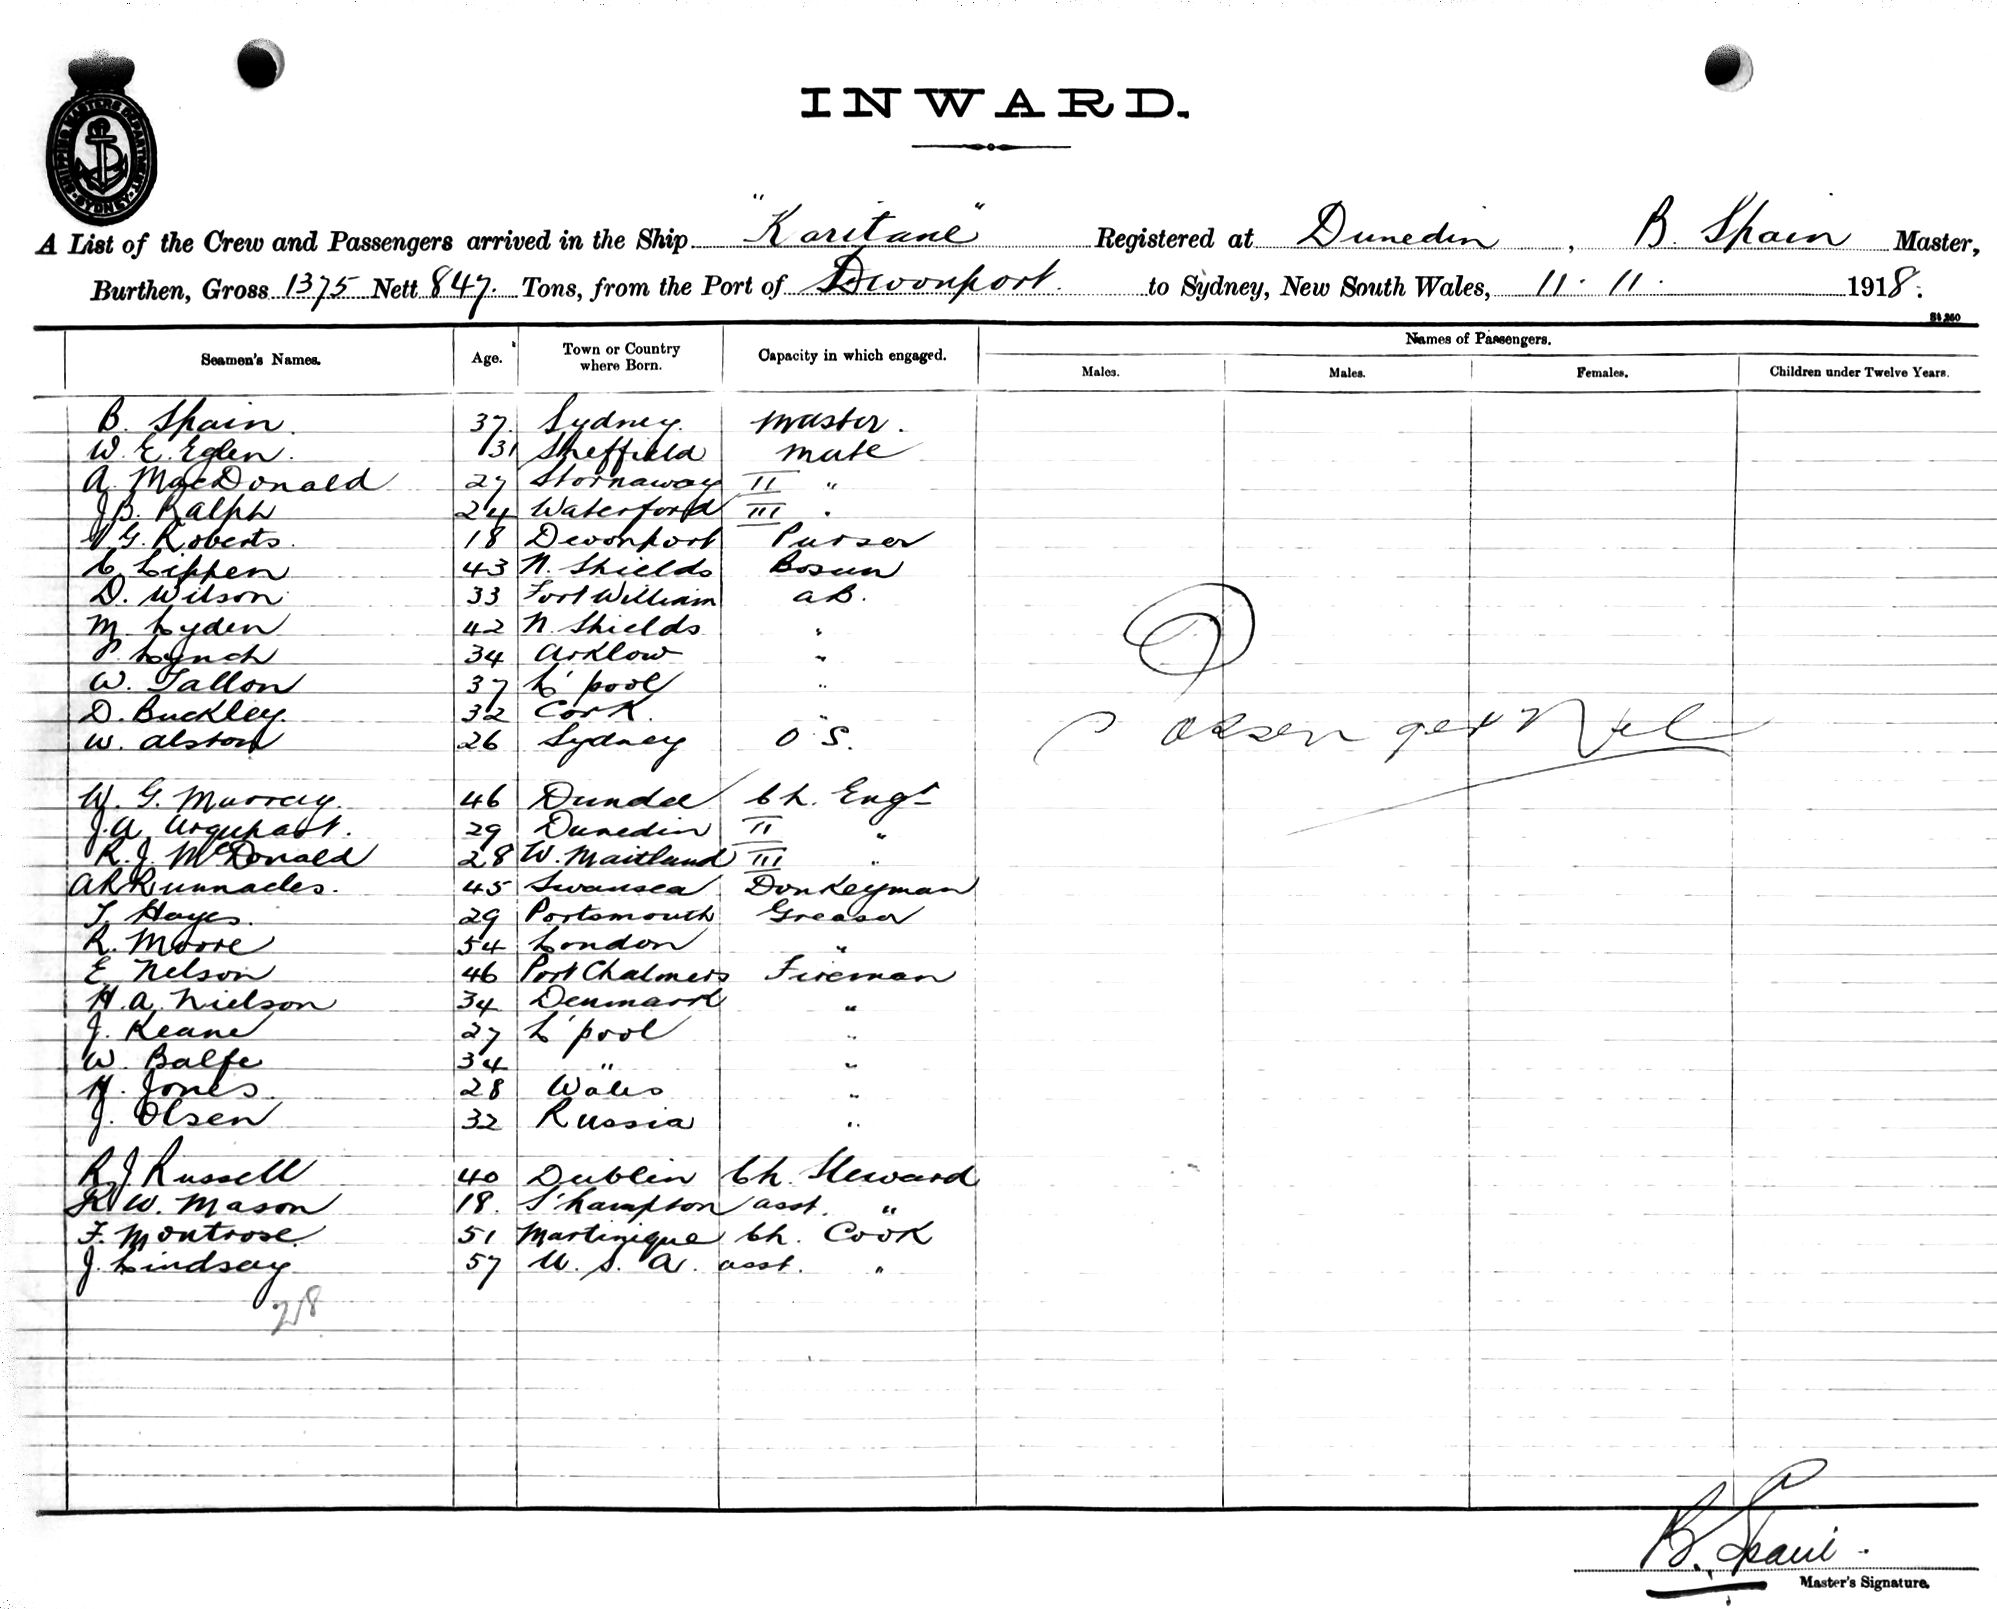 INWARD.
SHIPPING MASTERS DEPARTMENT SYDNEY
A List of the Crew and Passengers arrived in the Ship "Karitane" Registered at Dunedin, B. Spain Master,
Burthen, Gross 1375 Nett 847. Tons, from the Port of Devonport. to Sydney, New South Wales, 11. 11. 1918.
Seamen's Names. Age. Town or Country where Born. Capacity in which engaged. Names of Passengers.
Males. Males. Females. Children under Twelve Years.
B. Spain. 37. Sydney. Master.
W. E. Eglen. 31 Sheffield Mate
A. MacDonald 27 Stornaway II "
J. B. Ralph 24 Waterford III "
G. Roberts. 18 Devonport Purser
C. Lippen 43 N. Shields Bosun
D. Wilson 33 Fort William A.B.
M. Lyden 42 N. Shields "
P. Lynch 34 Arklow "
W. Tallon 37 L'pool "
D. Buckley. 32 Cork. "
W. Alston 26 Sydney O.S.
Passenger Nil
W. G. Murray. 46 Dundee Ch. Engr
J. A. Urquhart. 29 Dunedin II "
R. J. McDonald 28 W. Maitland III "
A R Runnacles. 45 Swansea Donkeyman
T. Hayes. 29 Portsmouth Greaser
R. Moore 54 London "
E Nelson 46 Port Chalmers Fireman
H. A. Nielson 34 Denmark "
J. Keane 27 L'pool "
W. Balfe 34 " "
H. Jones. 28 Wales "
J. Olsen 32 Russia "
R. J. Russell 40 Dublin Ch. Steward
R W. Mason 18. S'hampton asst. "
F. Montrose. 51 Martinique Ch. Cook
J. Lindsay 57 U. S. A. asst. "
28
B. Spain.
Master's Signature.